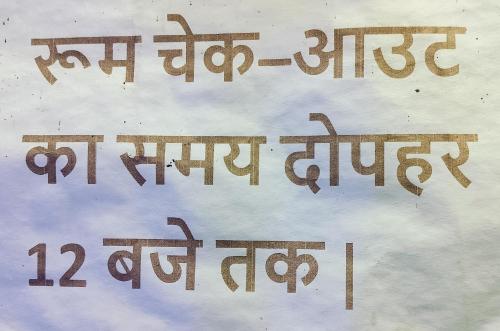 रूम चेक–आउट
का समय दोपहर
12 बजे तक |